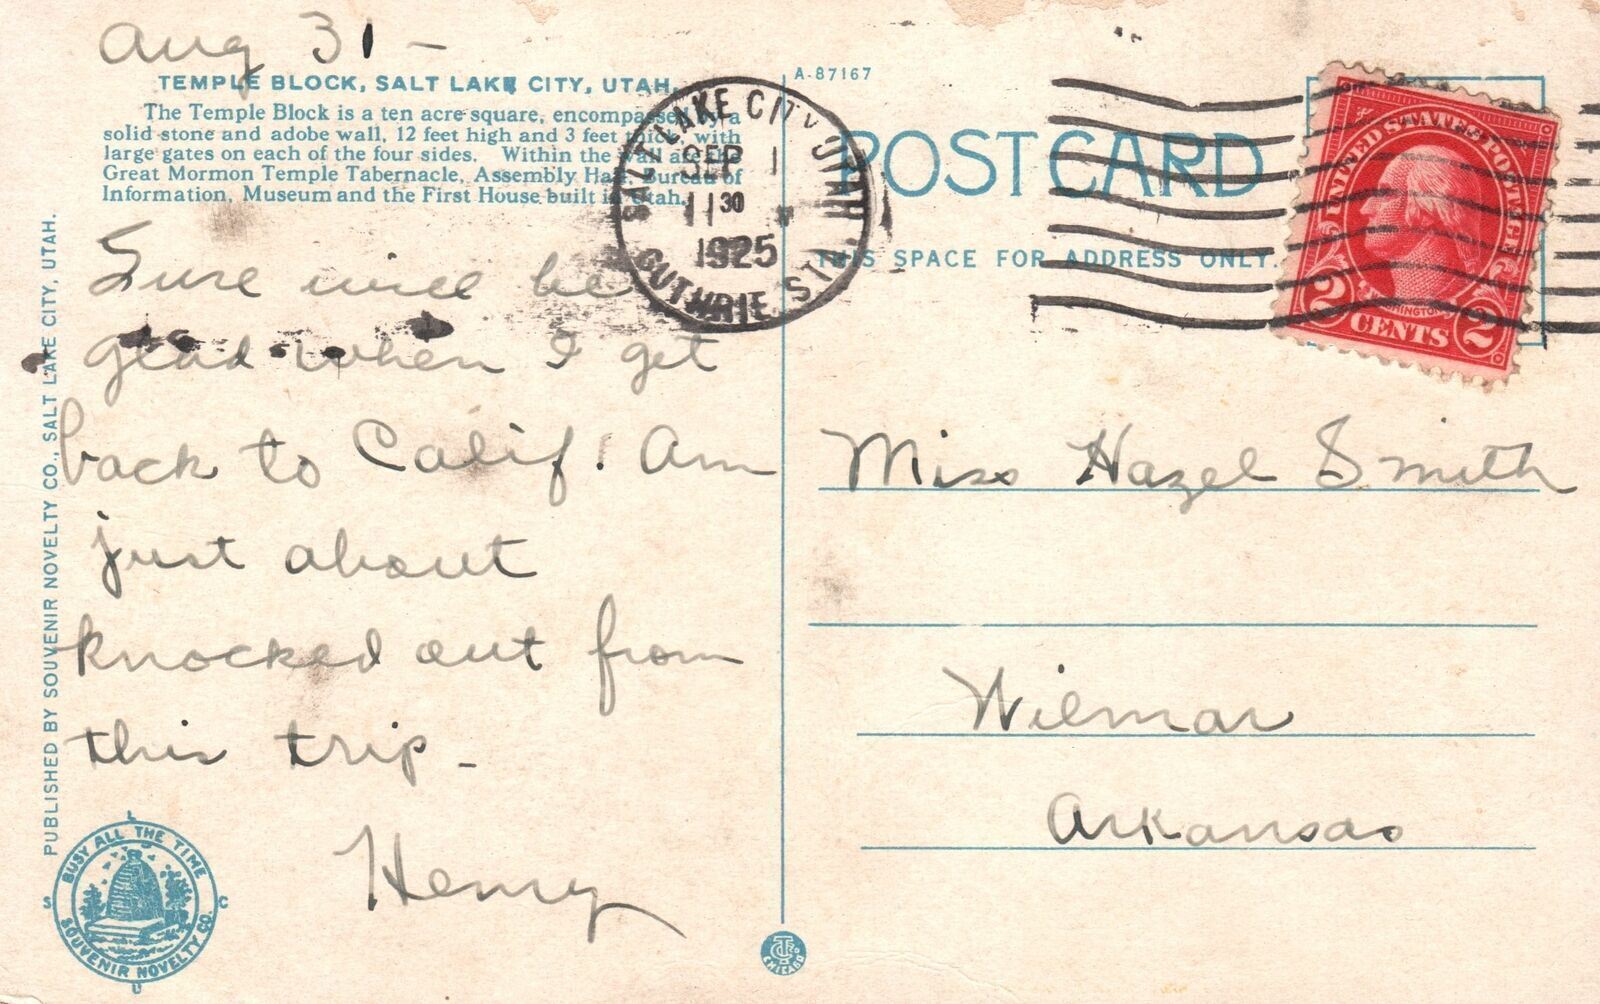 Aug 31 –
TEMPLE BLOCK, SALT LAKE CITY, UTAH.
The Temple Block is a ten acre square, encompassed by a
solid stone and adobe wall, 12 feet high and 3 feet thick, with
large gates on each of the four sides. Within the wall are the
Great Mormon Temple Tabernacle, Assembly Hall, Bureau of
Information, Museum and the First House built in Utah.
Sure will be
glad when I get
back to Calif! Am
just about
knocked out from
this trip –
Henry
PUBLISHED BY SOUVENIR NOVELTY CO., SALT LAKE CITY, UTAH.
BUSY ALL THE TIME
SOUVENIR NOVELTY CO.
S L C U
SALT LAKE CITY, UTAH
SEP 1
11 30
1925
GUTHRIE STA.
A-87167
POST CARD
THIS SPACE FOR ADDRESS ONLY.
UNITED STATES POSTAGE
WASHINGTON
2 CENTS 2
Miss Hazel Smith
Wilmar
Arkansas
CTCo
CHICAGO